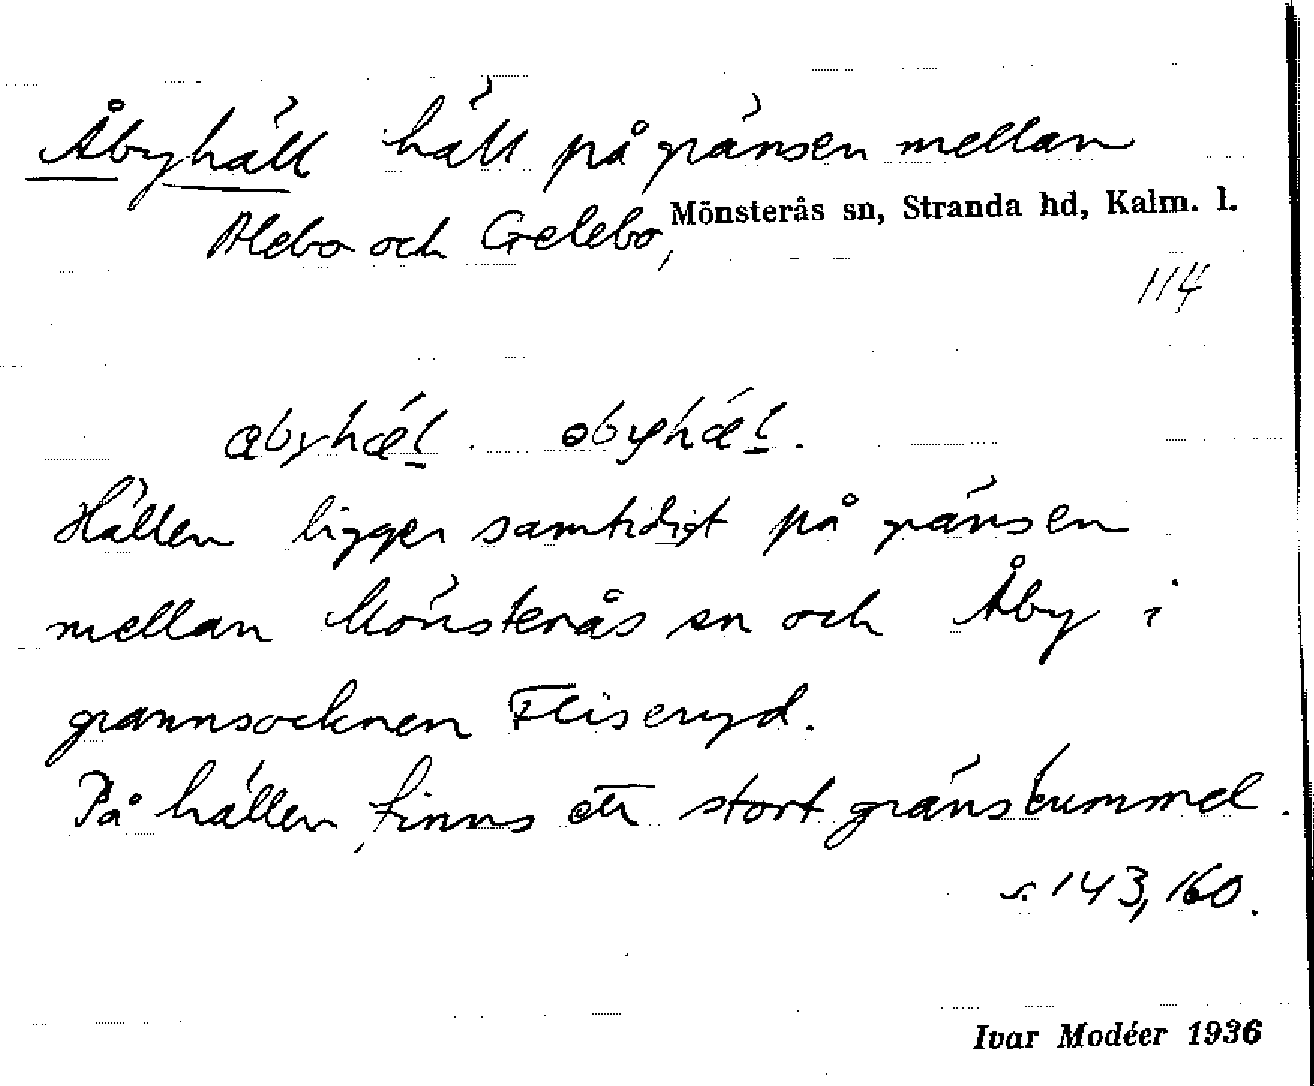 Åbyhäll häll på gränsen mellan
Alebo och Gelebo, Mönsterås sn, Stranda hd, Kalm. l.
114
Hällen ligger samtidigt på gränsen
mellan Mönsterås sn och Åby i
grannsocknen Fliseryd.
På hällen finns ett stort gränskummel.
s. 143, 160.
Ivar Modéer 1936